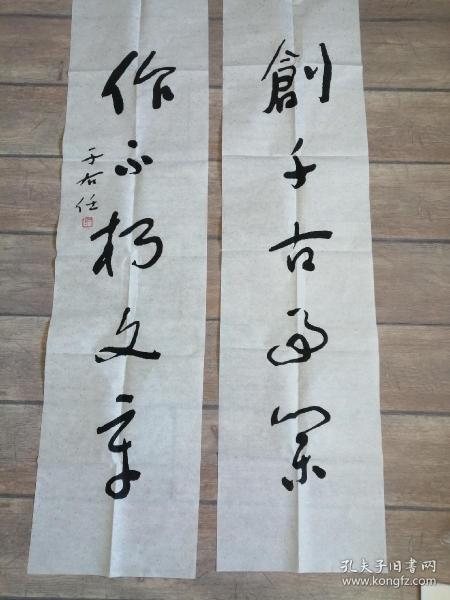 創千古事業
作不朽文章
于右任
孔夫子旧书网
www.kongfz.com